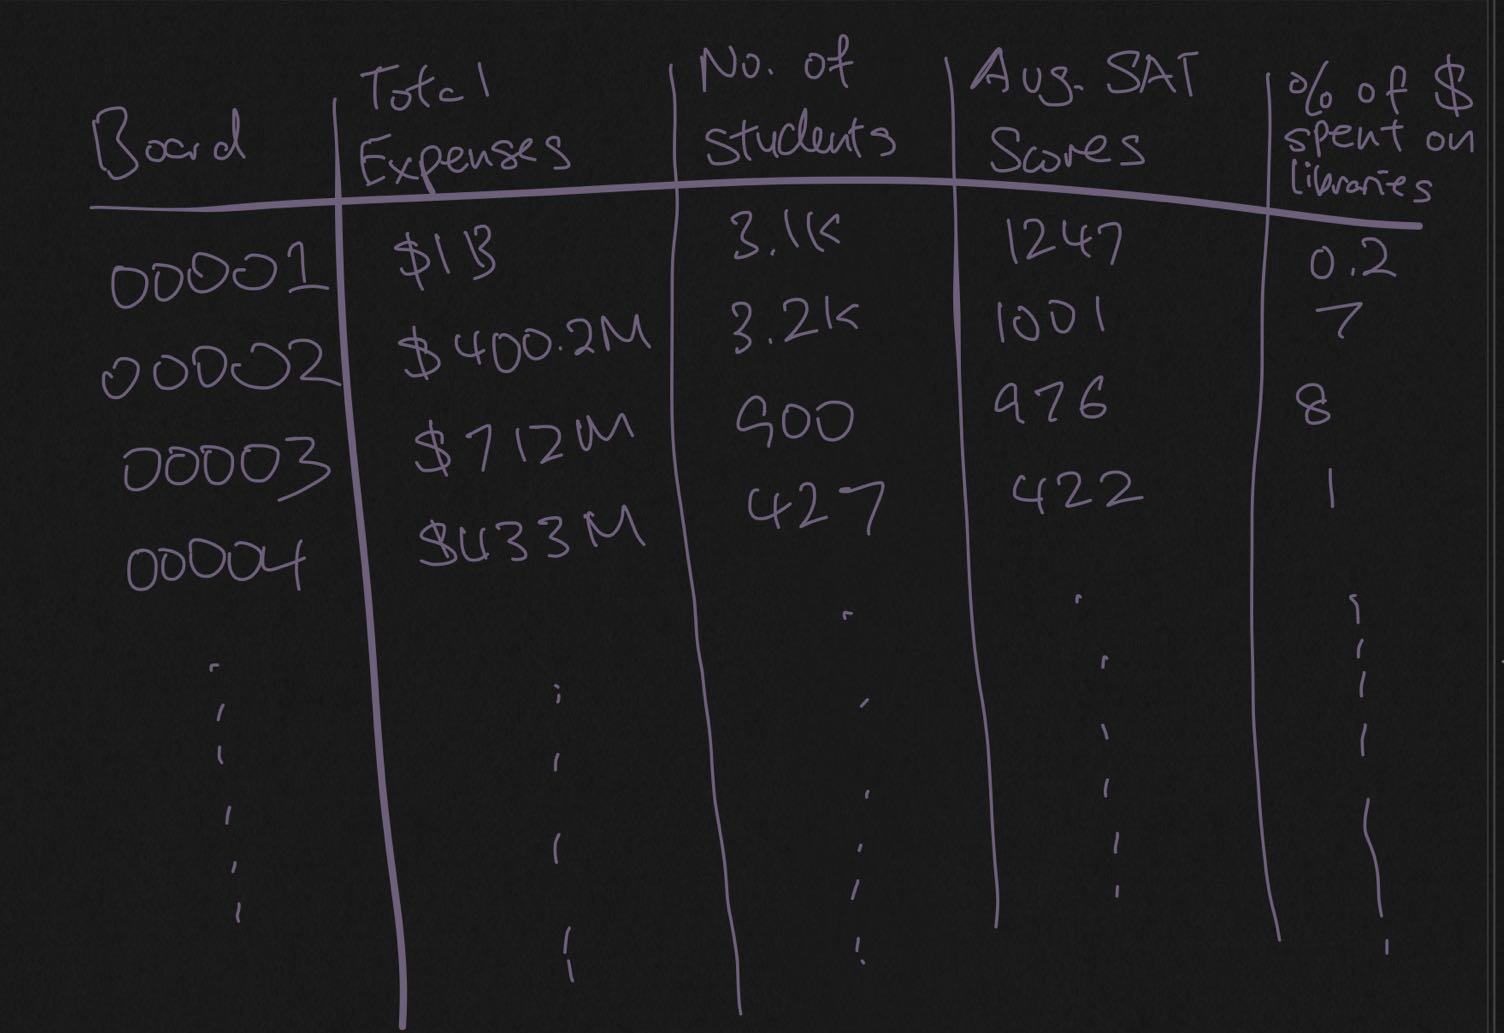 Board | Total Expenses | No. of students | Avg. SAT Scores | % of $ spent on libraries
00001 | $1B | 3.1K | 1247 | 0.2
00002 | $400.2M | 3.2K | 1001 | 7
00003 | $712M | 900 | 976 | 8
00004 | $433M | 427 | 422 | 1